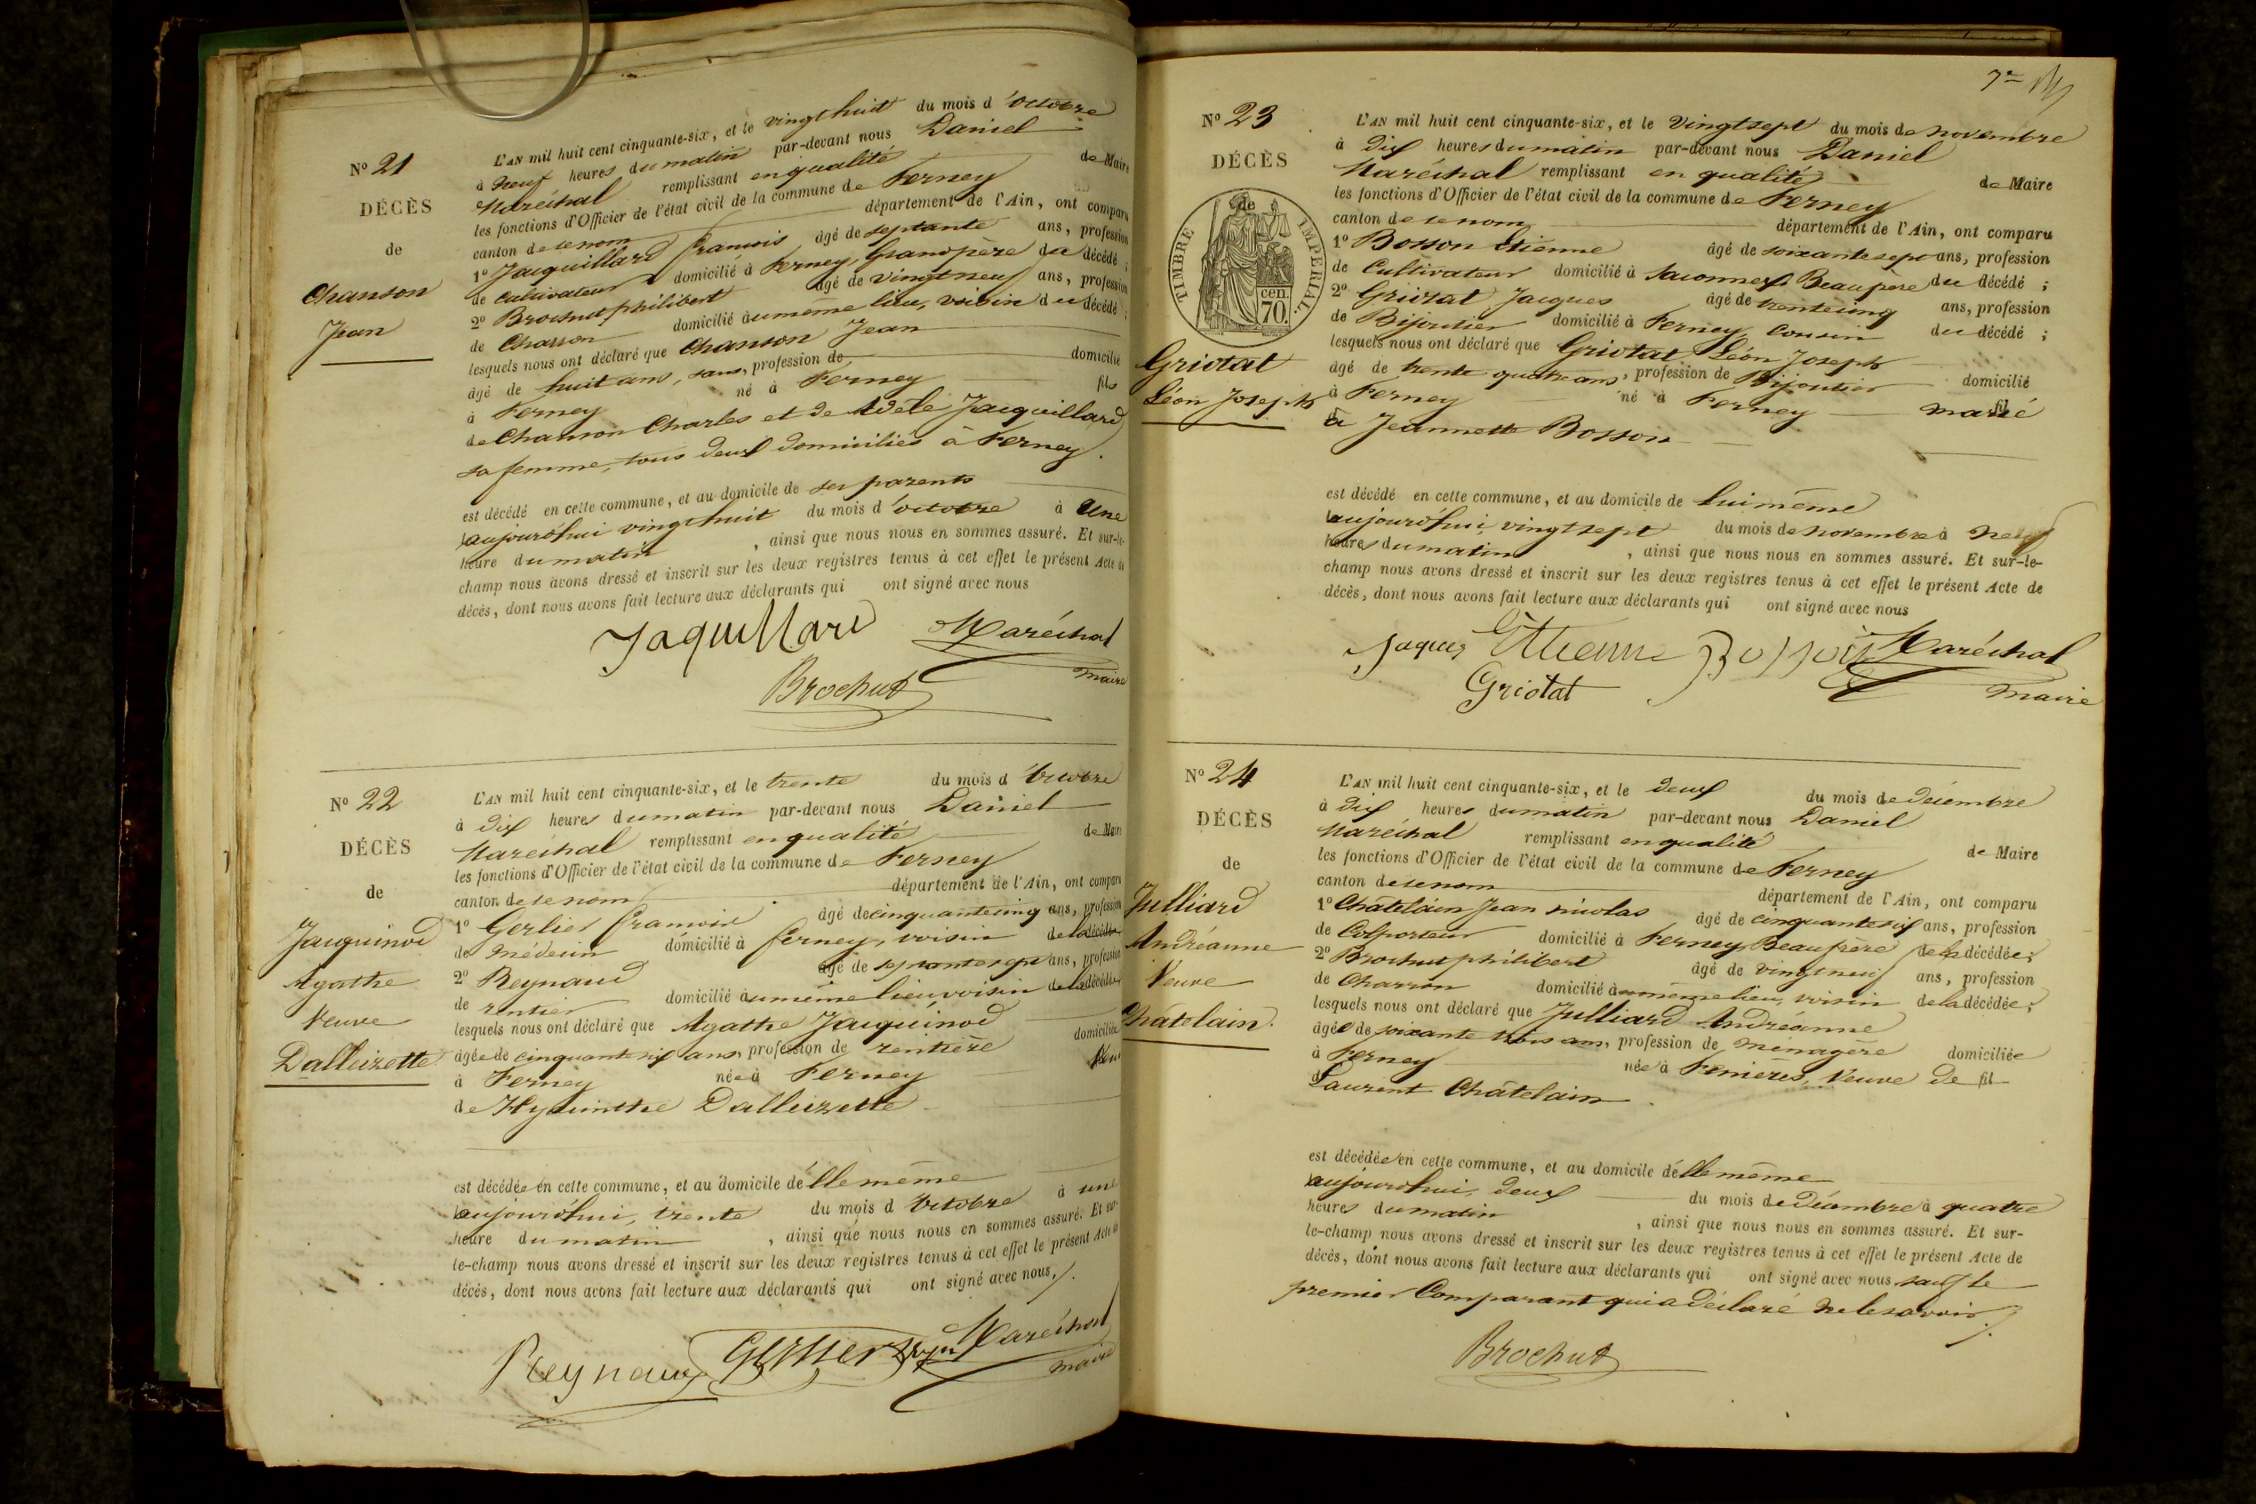 N° 21
DÉCÈS
de
Chanson
Jean
L'AN mil huit cent cinquante-six, et le vingt huit du mois d'octobre
à neuf heures du matin par-devant nous Daniel
Maréchal remplissant en qualité de Maire
les fonctions d'Officier de l'état civil de la commune de Ferney
canton de ce nom département de l'Ain, ont comparu
1° Jacquillard françois âgé de septante ans, profession
de cultivateur domicilié à Ferney, Grand père du décédé ;
2° Brochut philibert âgé de vingt neuf ans, profession
de Charron domicilié au même lieu, voisin du décédé ;
lesquels nous ont déclaré que Chanson Jean
âgé de huit ans, sans, profession de domicilié
à Ferney né à Ferney fils
de Chanson Charles et de Adèle Jacquillard
sa femme, tous deux domiciliés à Ferney.
est décédé en cette commune, et au domicile de ses parents
aujourd'hui vingt huit du mois d'octobre à Une
heure du matin, ainsi que nous nous en sommes assuré. Et sur-le-
champ nous avons dressé et inscrit sur les deux registres tenus à cet effet le présent Acte de
décès, dont nous avons fait lecture aux déclarants qui ont signé avec nous
Jaquillard Maréchal
Brochut maire
N° 22
DÉCÈS
de
Jacquinod
Agathe
Veuve
Dalleizette
L'AN mil huit cent cinquante-six, et le trente du mois d'octobre
à dix heures du matin par-devant nous Daniel
Maréchal remplissant en qualité de Maire
les fonctions d'Officier de l'état civil de la commune de Ferney
canton de ce nom département de l'Ain, ont comparu
1° Gerlier françois âgé de cinquante cinq ans, profession
de médecin domicilié à ferney, voisin de la décédée
2° Reynaud âgé de septante sept ans, profession
de rentier domicilié au même lieu, voisin de la décédée
lesquels nous ont déclaré que Agathe Jacquinod
âgée de cinquante six ans, profession de rentière domiciliée
à Ferney née à Ferney Veuve
de Hyacinthe Dalleizette
est décédée en cette commune, et au domicile d'elle même
aujourd'hui, trente du mois d'octobre à une
heure du matin, ainsi que nous nous en sommes assuré. Et sur-
le-champ nous avons dressé et inscrit sur les deux registres tenus à cet effet le présent Acte de
décès, dont nous avons fait lecture aux déclarants qui ont signé avec nous.
Reynaud Gerlier Maréchal
maire
7e
N° 23
DÉCÈS
de
TIMBRE IMPERIAL.
70 cen.
Griotat
Léon Joseph
L'AN mil huit cent cinquante-six, et le vingt sept du mois de novembre
à dix heures du matin par-devant nous Daniel
Maréchal remplissant en qualité de Maire
les fonctions d'Officier de l'état civil de la commune de Ferney
canton de ce nom département de l'Ain, ont comparu
1° Bosson Etienne âgé de soixante sept ans, profession
de Cultivateur domicilié à Saconnex Beaupère du décédé ;
2° Griotat Jacques âgé de trente cinq ans, profession
de Bijoutier domicilié à Ferney Cousin du décédé ;
lesquels nous ont déclaré que Griotat Léon Joseph
âgé de trente quatre ans, profession de Bijoutier domicilié
à Ferney né à Ferney marié fil
à Jeannette Bosson
est décédé en cette commune, et au domicile de lui même
aujourd'hui, vingt sept du mois de novembre à neuf
heures du matin, ainsi que nous nous en sommes assuré. Et sur-le-
champ nous avons dressé et inscrit sur les deux registres tenus à cet effet le présent Acte de
décès, dont nous avons fait lecture aux déclarants qui ont signé avec nous
Jaques Ettienne Bosson Maréchal
Griotat maire
N° 24
DÉCÈS
de
Julliard
Andréanne
Veuve
Chatelain.
L'AN mil huit cent cinquante-six, et le deux du mois de décembre
à dix heures du matin par-devant nous Daniel
Maréchal remplissant en qualité de Maire
les fonctions d'Officier de l'état civil de la commune de Ferney
canton de ce nom département de l'Ain, ont comparu
1° Chatelain Jean nicolas âgé de cinquante six ans, profession
de Colporteur domicilié à Ferney Beaufrère de la décédée ;
2° Brochut philibert âgé de vingt neuf ans, profession
de Charron domicilié au même lieu, voisin de la décédée ;
lesquels nous ont déclaré que Julliard Andréanne
âgée de soixante trois ans, profession de ménagère domiciliée
à Ferney née à Fenières, Veuve de fil
Laurent Chatelain
est décédée en cette commune, et au domicile d'elle même
aujourd'hui, deux du mois de Décembre à quatre
heures du matin, ainsi que nous nous en sommes assuré. Et sur-
le-champ nous avons dressé et inscrit sur les deux registres tenus à cet effet le présent Acte de
décès, dont nous avons fait lecture aux déclarants qui ont signé avec nous sauf le
premier Comparant qui a déclaré ne le savoir.
Brochut